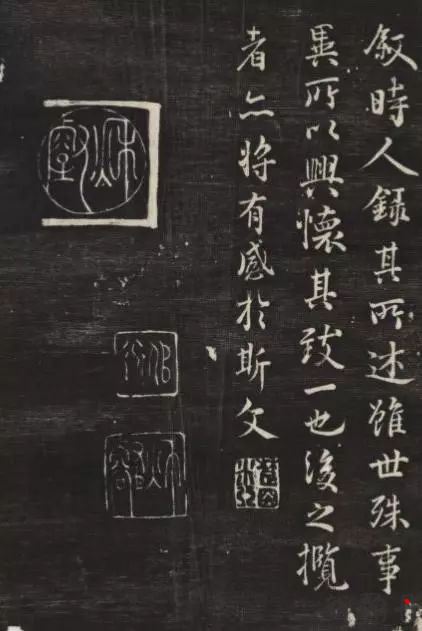 叙時人錄其所述雖世殊事
異所以興懷其致一也後之攬
者亦將有感於斯文